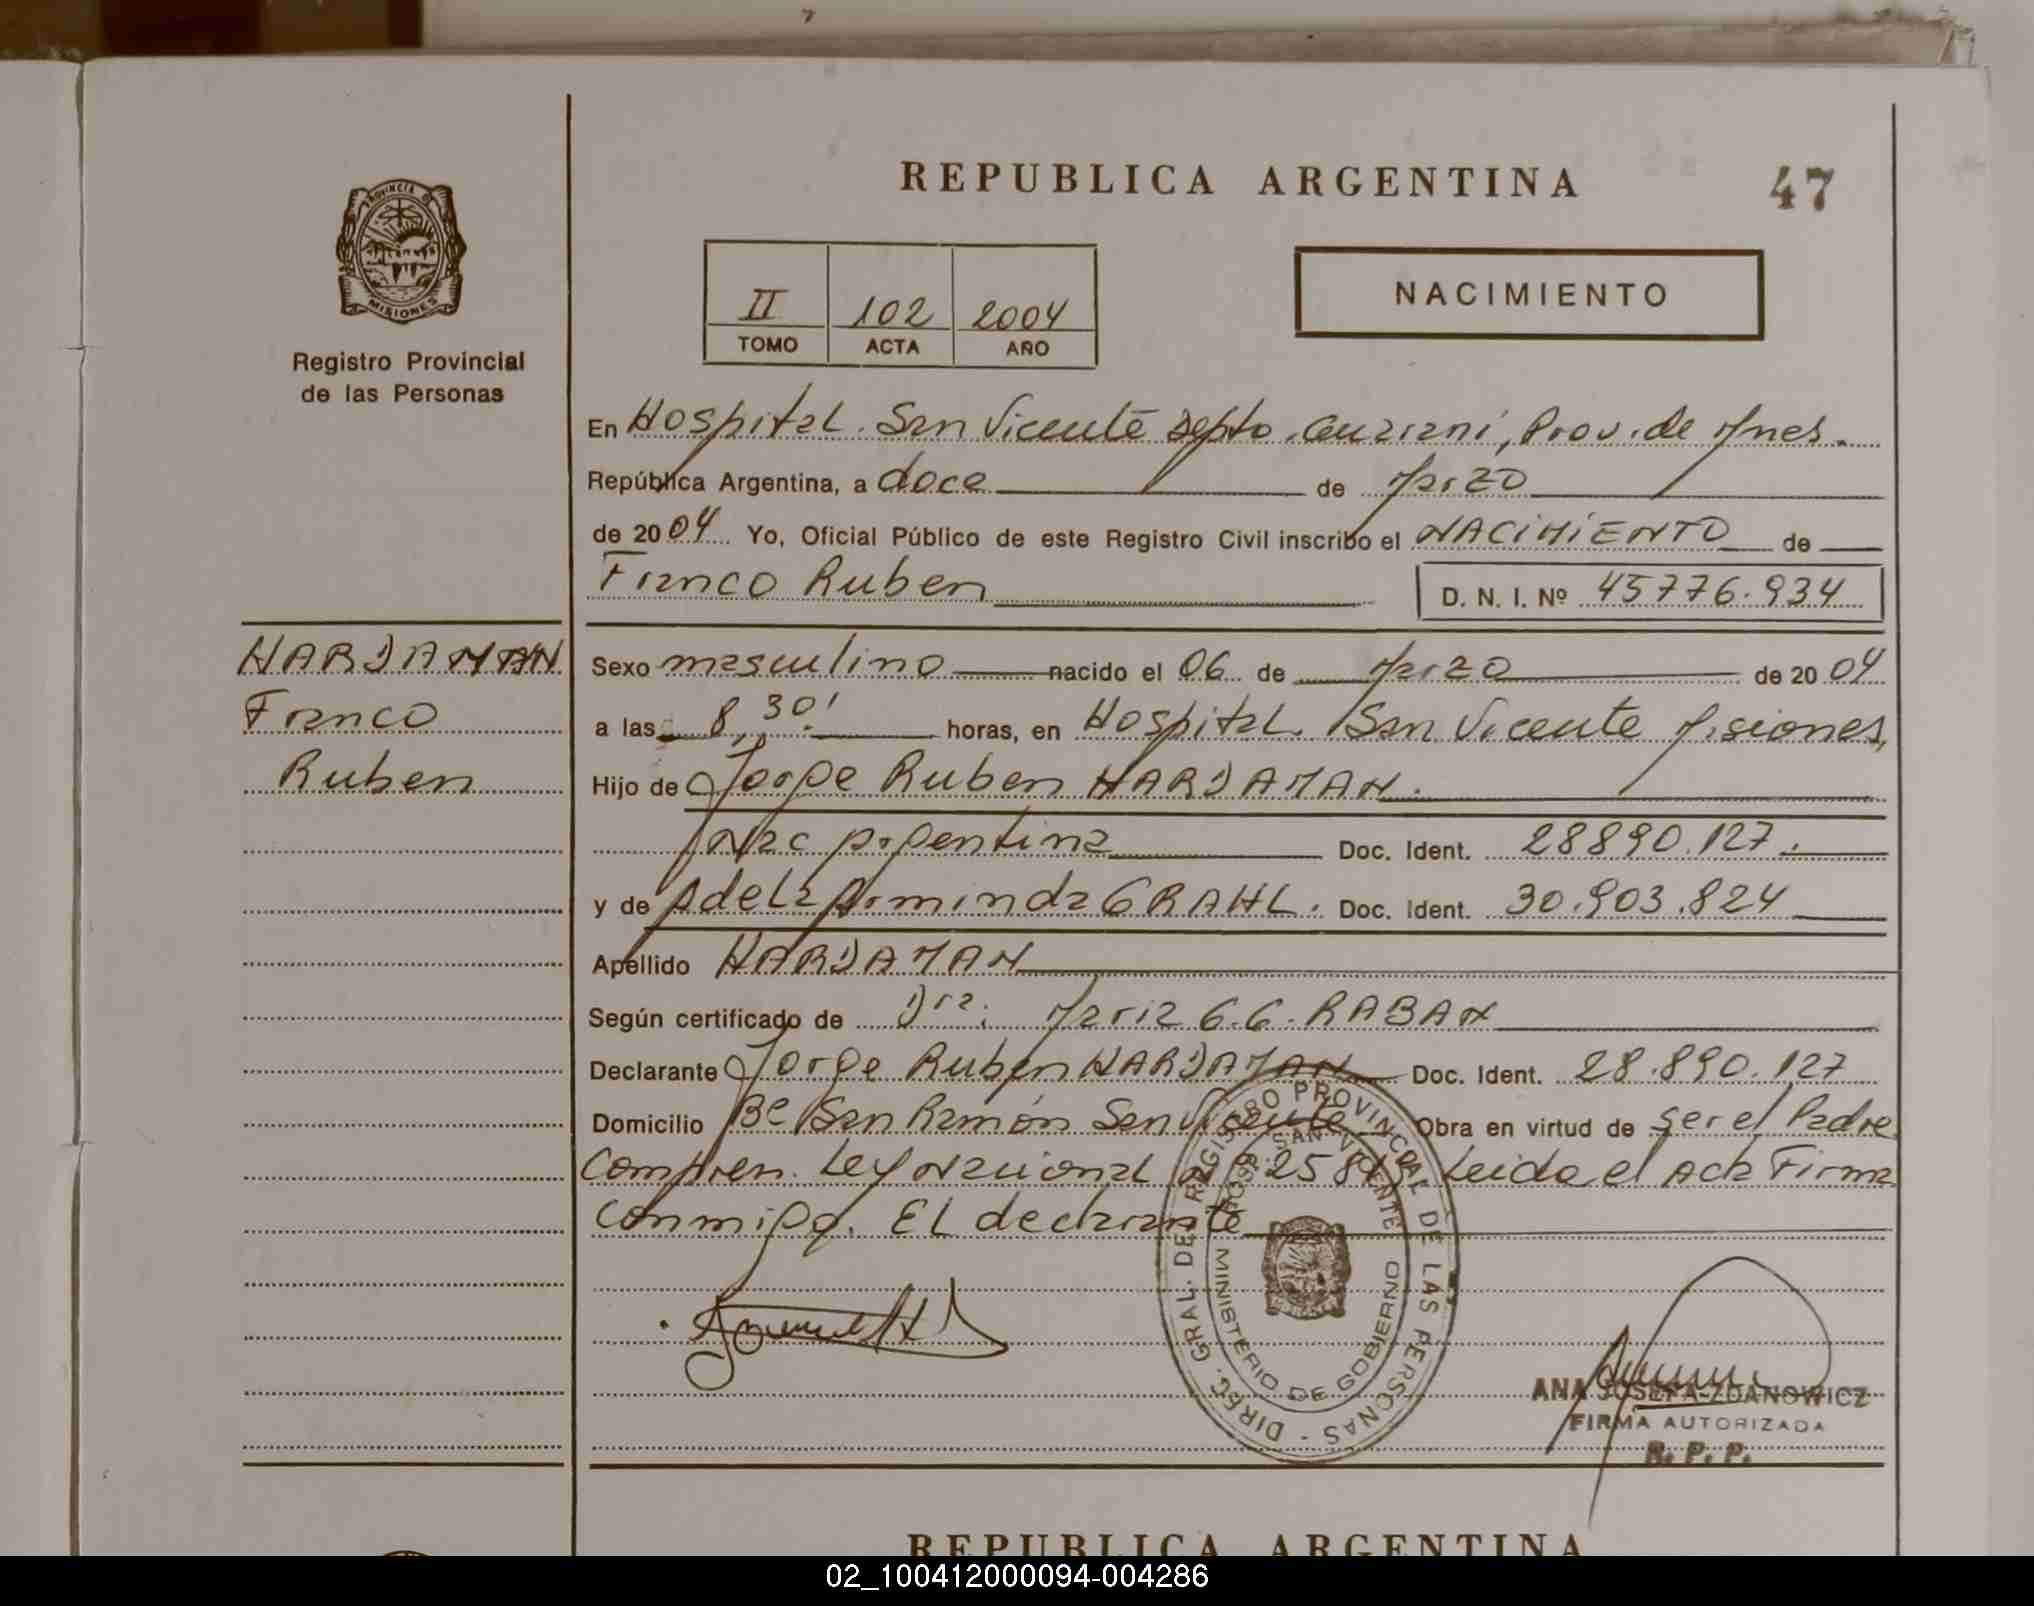 REPUBLICA ARGENTINA
47
PROVINCIA DE
MISIONES
Registro Provincial
de las Personas
II 102 2004
TOMO ACTA AÑO
NACIMIENTO
En Hospital San Vicente Depto. Guarani, Prov. de Mnes.
República Argentina, a doce de Marzo
de 2004 Yo, Oficial Público de este Registro Civil inscribo el NACIMIENTO de
Franco Ruben
D. N. I. Nº 45776.934
HARDAMAN
Franco
Ruben
Sexo masculino nacido el 06 de Marzo de 2004
a las 8,30' horas, en Hospital San Vicente Misiones,
Hijo de Jorge Ruben HARDAMAN.
Nac Argentina Doc. Ident. 28890.127.
y de Adela Arminda GRAHL. Doc. Ident. 30.903.824
Apellido HARDAMAN
Según certificado de Dra. Maria G.G. RABAN
Declarante Jorge Ruben HARDAMAN Doc. Ident. 28.890.127
Domicilio Bº San Ramón San Vicente Obra en virtud de ser el Padre
Compren. Ley Nacional Leida el Acta Firma
Conmigo. El declarante
DIREC. GRAL. DEL REGISTRO PROVINCIAL DE LAS PERSONAS -
HOSP. SAN VICENTE
MINISTERIO DE GOBIERNO
ANA JOSEFA ZDANOWICZ
FIRMA AUTORIZADA
R. P. P.
REPUBLICA ARGENTINA
02_100412000094-004286